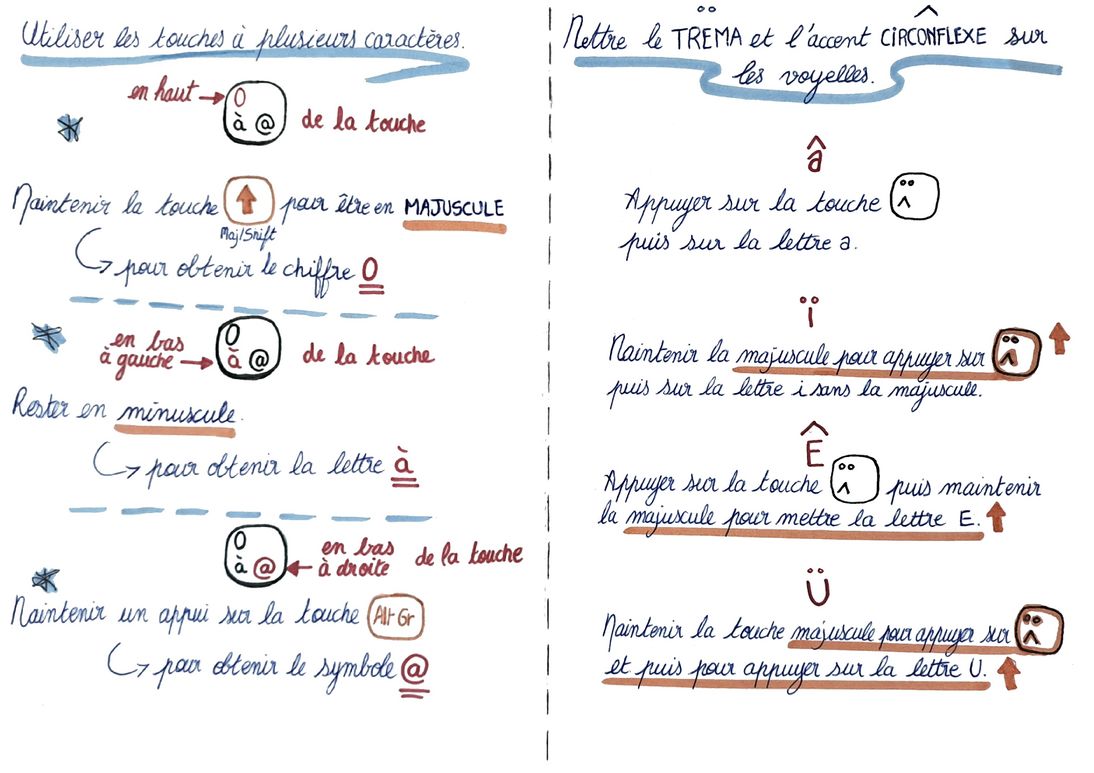 Utiliser les touches à plusieurs caractères.
en haut → 0
à @ de la touche
Maintenir la touche ↑ pour être en MAJUSCULE
Maj/Shift
↪ pour obtenir le chiffre 0
0
en bas
à gauche → à @ de la touche
Rester en minuscule.
↪ pour obtenir la lettre à
0
à @ ← en bas
à droite de la touche
Maintenir un appui sur la touche Alt Gr
↪ pour obtenir le symbole @
Mettre le TRËMA et l'accent CIRCONFLEXE sur
les voyelles.
â
Appuyer sur la touche ¨ ^
puis sur la lettre a.
ï
Maintenir la majuscule pour appuyer sur ¨ ^ ↑
puis sur la lettre i sans la majuscule.
Ê
Appuyer sur la touche ¨ ^ puis maintenir
la majuscule pour mettre la lettre E. ↑
Ü
Maintenir la touche majuscule pour appuyer sur ¨ ^
et puis pour appuyer sur la lettre U. ↑